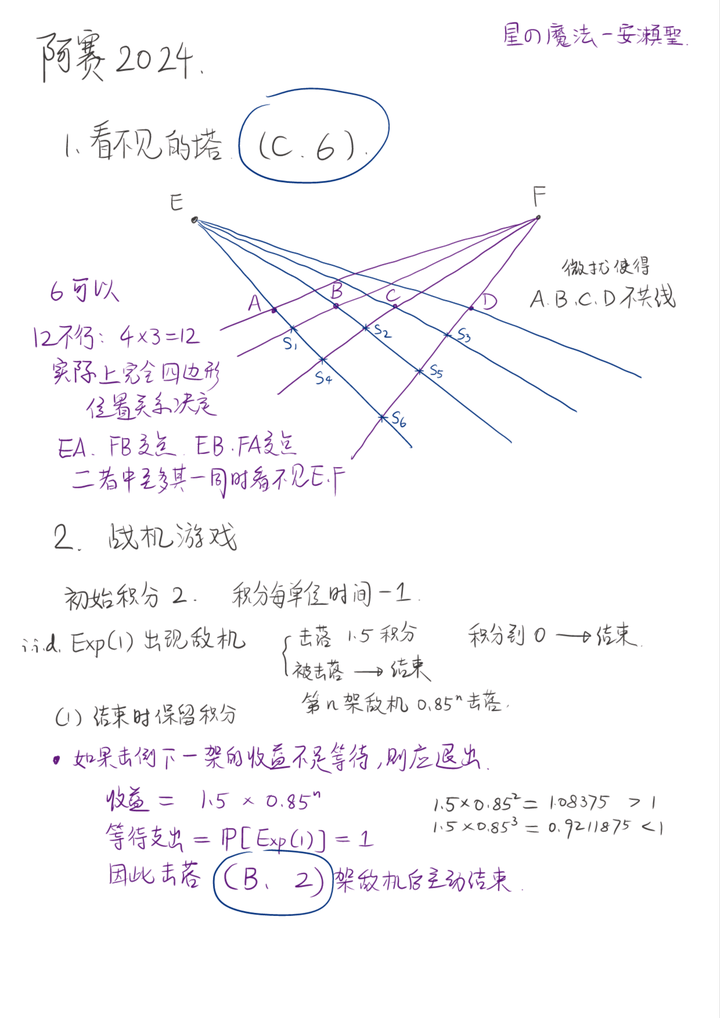 星の魔法-安瀬聖.
阿赛 2024.
1. 看不见的塔. (C. 6).
E
F
微扰使得
A.B.C.D 不共线
A
B
C
D
S1
S2
S3
S4
S5
S6
6可以
12不行: 4×3=12
实际上完全四边形
位置关系决定
EA. FB交点. EB.FA交点
二者中至多其一同时看不见E.F
2. 战机游戏
初始积分 2. 积分每单位时间 -1.
i.i.d. Exp(1) 出现敌机 { 击落 1.5 积分 积分到 0 → 结束.
被击落 → 结束
第n架敌机 0.85ⁿ 击落.
(1) 结束时保留积分
• 如果击倒下一架的收益不足等待,则应退出.
收益 = 1.5 × 0.85ⁿ
1.5×0.85² = 1.08375 > 1
1.5×0.85³ = 0.9211875 < 1
等待支出 = ℙ[Exp(1)] = 1
因此击落 (B、2) 架敌机后主动结束.